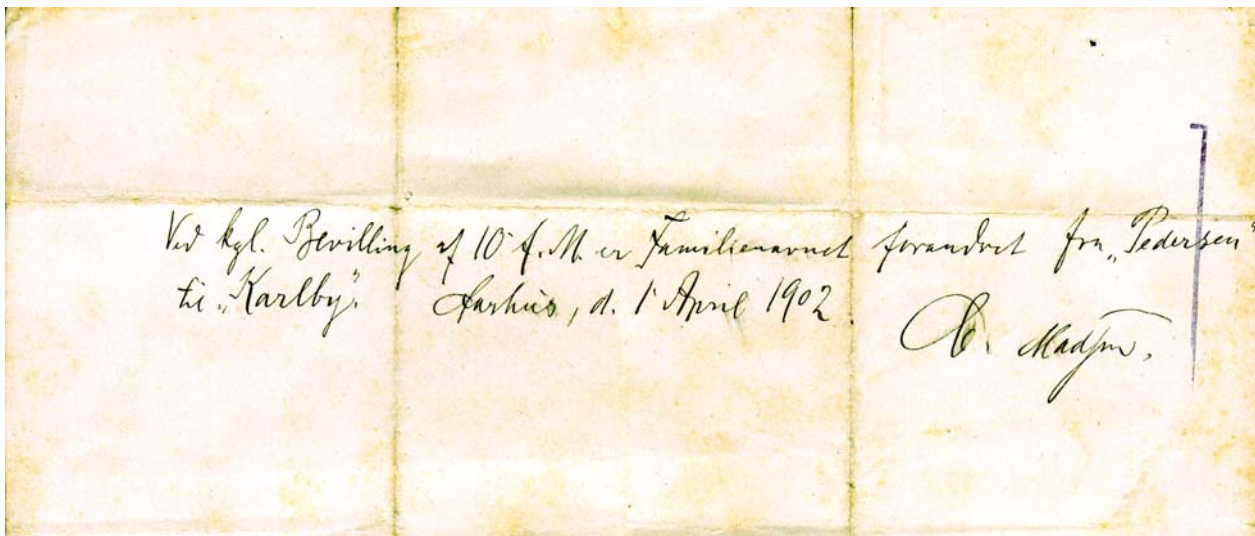 Ved kgl. Bevilling af 10' f. M. er Familienavnet forandret fra „Pedersen"
til „Karlby". Aarhus, d. 1' April 1902.
Madsen.